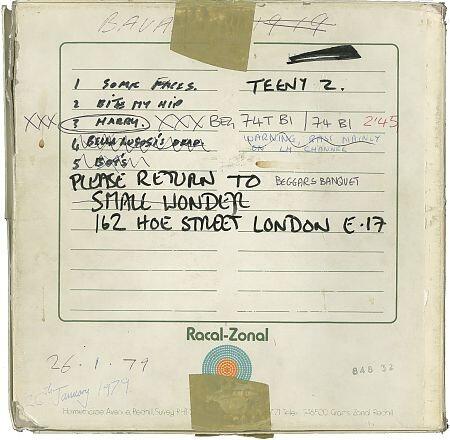 1 SOME FACES. TEENY 2.
2 BITE MY HIP
XXX 3 HARRY. XXX BEG 74T B1 / 74 B1 2'45
4 BELA LUGOSI'S DEAD WARNING, BASS MAINLY
ON LH CHANNEL
5 BOYS
PLEASE RETURN TO BEGGARS BANQUET
SMALL WONDER
162 HOE STREET LONDON E.17
Racal-Zonal
26.1.79
848 32
26th January 1979
Holmethorpe Avenue, Redhill, Surrey RH1
Telex Grams Zonal Redhill